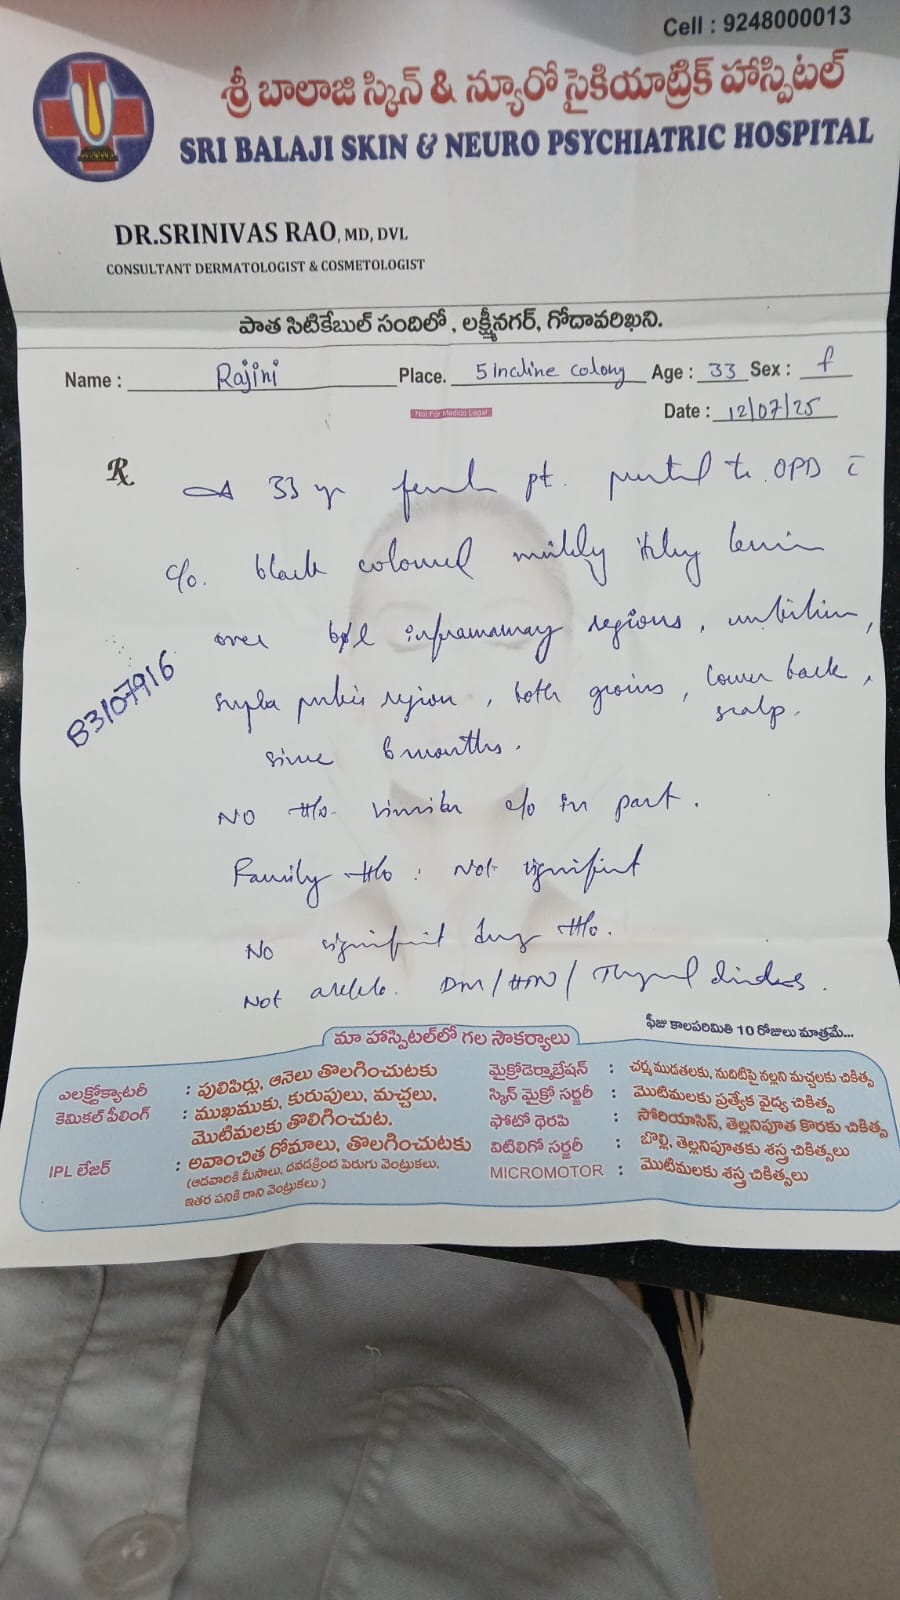 Cell : 9248000013
శ్రీ బాలాజి స్కిన్ & న్యూరో సైకియాట్రిక్ హాస్పిటల్
SRI BALAJI SKIN & NEURO PSYCHIATRIC HOSPITAL
DR.SRINIVAS RAO, MD, DVL
CONSULTANT DERMATOLOGIST & COSMETOLOGIST
పాత సిటికేబుల్ సందిలో , లక్ష్మీనగర్, గోదావరిఖని.
Name : Rajini Place. 5 Incline colony Age : 33 Sex : f
Not For Medico Legal
Date : 12/07/25
Rx
A 33 yr female pt. presented to OPD c̄
c/o. black coloured mildly itchy lesions
over b/l inframammary regions, umbilicus,
supra pubic region, both groins, lower back,
scalp.
since 6 months.
B3107916
NO H/o. similar c/o in past.
Family H/o : Not significant
No significant drug H/o.
Not a k/c/o. DM/HTN/Thyroid disorders.
ఫీజు కాలపరిమితి 10 రోజులు మాత్రమే...
మా హాస్పిటల్‌లో గల సౌకర్యాలు
ఎలక్ట్రోక్యాటరీ : పులిపిర్లు, ఆనెలు తొలగించుటకు
కెమికల్ పీలింగ్ : ముఖముకు, కురుపులు, మచ్చలు,
మొటిమలకు తొలిగించుట.
IPL లేజర్ : అవాంచిత రోమాలు, తొలగించుటకు
(ఆడవారికి మీసాలు, దవడక్రింద పెరుగు వెంట్రుకలు,
ఇతర పనికి రాని వెంట్రుకలు )
మైక్రోడెర్మాబ్రేషన్ : చర్మముడతలకు, నుదిటిపై నల్లని మచ్చలకు చికిత్స
స్కిన్ మైక్రో సర్జరీ : మొటిమలకు ప్రత్యేక వైద్య చికిత్స
ఫోటో థెరపి : సోరియాసిస్, తెల్లనిపూత కొరకు చికిత్స
విటిలిగో సర్జరీ : బొల్లి, తెల్లనిపూతకు శస్త్ర చికిత్సలు
MICROMOTOR : మొటిమలకు శస్త్ర చికిత్సలు